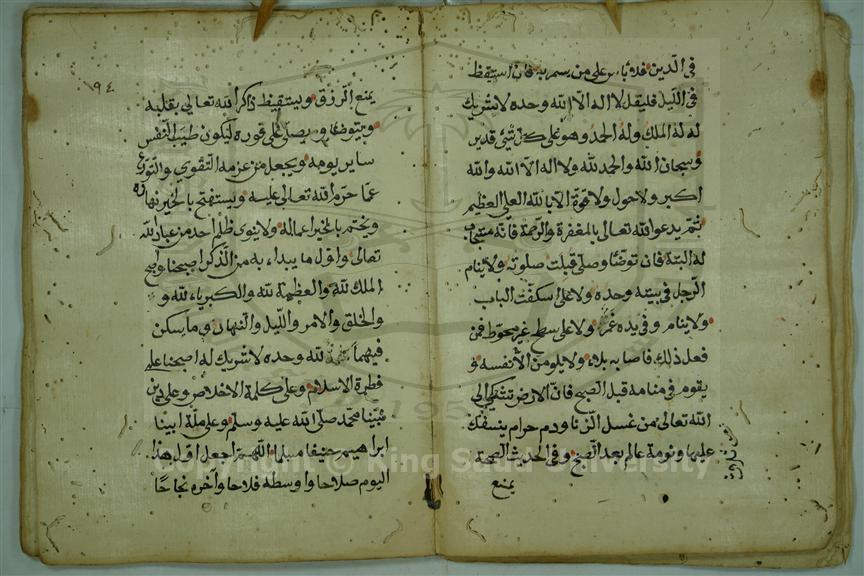 في الدين فلا بأس على من يسمر به فان استيقظ
في الليل فليقل لا اله الا الله وحده لا شريك
له له الملك وله الحمد وهو على كل شئ قدير
وسبحان الله والحمد لله ولا اله الا الله والله
اكبر ولا حول ولا قوة الا بالله العلي العظيم
ثم يدعو الله تعالى بالمغفرة والرحمة فانه مستجاب
له البتة فان توضأ وصلى قبلت صلوته ولا ينام
الرجل في بيته وحده ولا على اسكفت الباب
ولا ينام وفي يده غمر ولا على سطح غير محوط فمن
فعل ذلك فاصابه بلاء ولا يلومن الا نفسه و
يقوم في منامه قبل الصبح فان الارض تشتكي الى
الله تعالى من غسل الزنا ودم حرام ينسفك
عليها ونومة عالم بعد الصبح وفي الحديث الصبحة
يمنع
٩٤
يمنع الرزق ويستيقظ ذاكرا لله تعالى بقلبه
ويتوضأ ويصلي على فوره ليكون طيب النفس
ساير يومه ويجعل من عزمه التقوى والتورع
عما حرم الله تعالى عليه ويستفتح بالخير نهاره
ويختم بالخير اعماله ولا ينوي ظلم احد من عباد الله
تعالى واول ما يبداء به من الذكر اصبحنا واصبح
الملك لله والعظمة لله والكبرياء لله و
والخلق والامر والليل والنهار وما سكن
فيهما لله وحده لا شريك له اصبحنا على
فطرة الاسلام وعلى كلمة الاخلاص وعلى دين
نبينا محمد صلى الله عليه وسلم وعلى ملة ابينا
ابراهيم حنيفا مسلما اللهم اجعل اول هذا
اليوم صلاحا واوسطه فلاحا وآخره نجاحا
Copyright © King Saud University
195